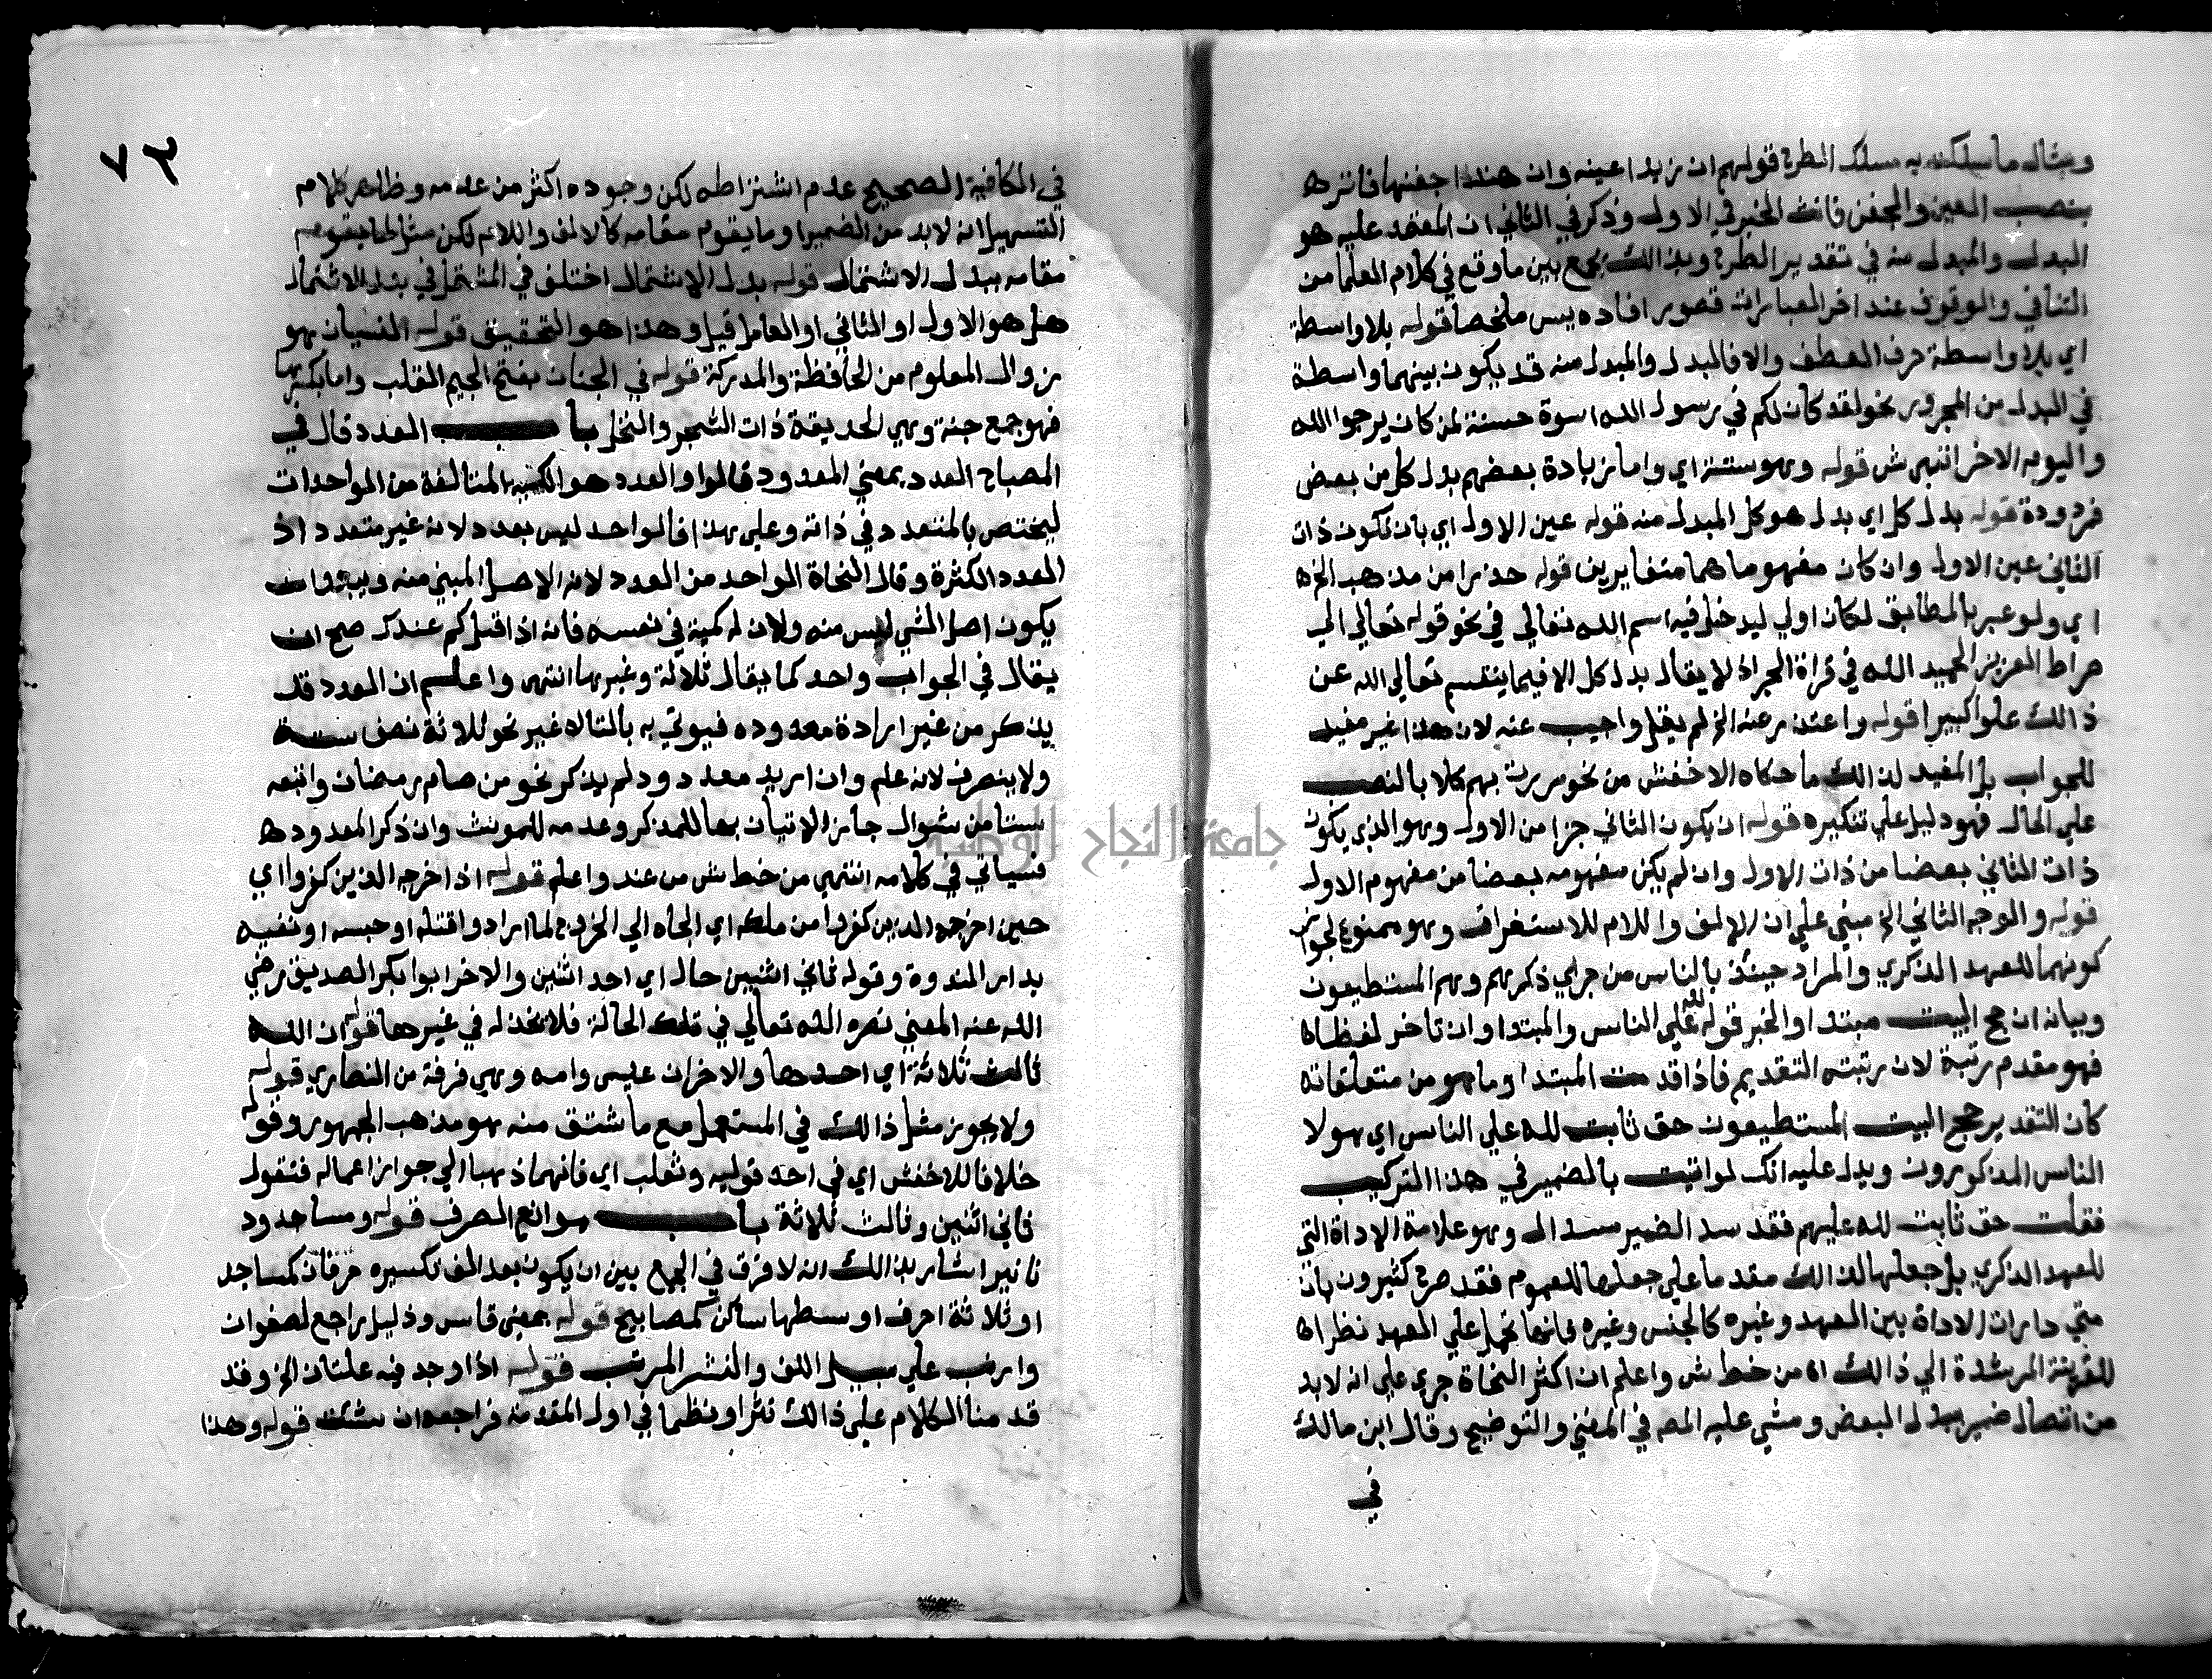 ومثال ما سلكنه به مسلك الطرح قولهم ان زيدا عينه وان هندا جفنها فاتره
بنصب العين والجفن فانث الخبر في الاول وذكر في الثاني ان المعتمد عليه هو
البدل والمبدل منه في تقدير الطرح وبذالك يجمع بين ما وقع في كلام العلما من
التنافي والوقوف عند اخر العبارات قصور افاده يس ملخصا قوله بلا واسطة
اي بلا واسطة حرف العطف والا فالبدل والمبدل منه قد يكون بينهما واسطة
في البدل من المجرور نحو لقد كان لكم في رسول الله اسوة حسنة لمن كان يرجوا الله
واليوم الاخر انتهي ش قوله وهو ستة اي واما زيادة بعضهم بدل كل من بعض
فمردودة قوله بدل كل اي بدل هو كل المبدل منه قوله عين الاول اي بان تكون ذات
الثاني عين الاول وان كان مفهوما هما متغايرين قوله حذرا من مذهب الخ ه
اي ولو عبر بالمطابق لكان اولي ليدخل فيه اسم الله تعالي في نحو قوله تعالي الي
صراط العزيز الحميد الله في قراة الجر اذ لا يقال بدل كل الا فيما ينقسم تعالي الله عن
ذالك علوا كبيرا قوله واعتذر عنه الخ لم يقل واجيب عنه لان هذا غير مفيد
للجواب بل المفيد لذالك ما حكاه الاخفش من نحو مررت بهم كلا بالنصب
علي الحال فهو دليل علي تنكيره قوله ان يكون الثاني جزا من الاول وهو الذي يكون
ذات الثاني بعضا من ذات الاول وان لم يكن مفهومه بعضا من مفهوم الاول
قوله والوجه الثاني الخ مبني علي ان الالف واللام للاستغراق وهو ممنوع لجواز
كونهما للعهد الذكري والمراد حينئذ بالناس من جري ذكرهم وهم المستطيعون
وبيانه ان حج البيت مبتدا والخبر قوله لله علي الناس والمبتدا وان تاخر لفظا ه
فهو مقدم رتبة لان رتبته التقديم فاذا قدمت المبتدا وما هو من متعلقاته
كان التقدير حج البيت المستطيعون حق ثابت لله علي الناس اي هولا
الناس المذكورون ويدل عليه انك لو اتيت بالضمير في هذا التركيب
فقلت حق ثابت لله عليهم فقد سد الضمير مسد ال وهو علامة الاداة التي
للعهد الذكري بل جعلها لذالك مقدما علي جعلها للعموم فقد صرح كثيرون بان
متي دارات الاداة بين العهد وغيره كالجنس وغيره فانها تحمل علي العهد نظرا ه
للقرينة المرشدة الي ذالك اه من خط ش واعلم ان اكثر النحاة جري علي انه لابد
من اتصال ضمير ببدل البعض ومشي عليه المص في المغني والتوضيح وقال ابن مالك
في
٧٣
في الكافية الصحيح عدم اشتراطه لكن وجوده اكثر من عدمه وظاهر كلام
التسهيل انه لابد من الضمير او ما يقوم مقامه كالالف واللام لكن مثل لما يقوم
مقامه ببدل الاشتمال قوله بدل الاشتمال اختلف في المشتمل في بدل الاشتمال
هل هو الاول او الثاني او العامل قيل وهذا هو التحقيق قوله النسيان هو
زوال المعلوم من الحافظة والمدركة قوله في الجنان بفتح الجيم القلب واما بكسرها
فهو جمع جنة وهي الحديقة ذات الشجر والنخل باب العدد قال في
المصباح العدد بمعني المعدود قالوا والعدد هو الكمية المتالفة من الواحدات
ليختص بالمتعدد في ذاته وعلي هذا فالواحد ليس بعدد لانه غير متعدد اذ
العدد الكثرة وقال النحاة الواحد من العدد لانه الاصل المبني منه ويبعد ان
يكون اصل الشي ليس منه ولان له كمية في نفسه فانه اذا قيل كم عندك صح ان
يقال في الجواب واحد كما يقال ثلاثة وغيرها انتهي واعلم ان العدد قد
يذكر من غير ارادة معدوده فيوتي به بالتا لا غير نحو ثلاثة نصف ستة
ولا ينصرف لانه علم وان اريد معدود ولم يذكر نحو من صام رمضان واتبعه
ستا من شوال جاز الاتيان بها للمذكر وعدمه للمونث وان ذكر المعدود ه
فسياتي في كلامه انتهي من خط ش من عند واعلم قوله اذ اخرجه الذين كفروا اي
حين اخرجه الذين كفروا من مكه اي الجاه الي الخروج لما ارادوا قتله او حبسه او نفيه
بدار الندوة وقوله ثاني اثنين حال اي احد اثنين والاخر ابوا بكر الصديق رضي
الله عنه المعني نصره الله تعالي في تلك الحالة فلا يخذله في غيرها قوله ان الله
ثالث ثلاثة اي احدها والاخران عيسي وامه وهي فرقة من النصاري قوله
ولا يجوز مثل ذالك في المستعمل مع ما شتق منه هو مذهب الجمهور وقوله
خلافا للاخفش اي في احد قوليه وثعلب اي فانهما ذهبا الي جواز اعماله فتقول
ثاني اثنين وثالث ثلاثة باب موانع الصرف قوله ومساجد ود
نانير اشار بذالك انه لا فرق في الجمع بين ان يكون بعد الف تكسيره حرفان كمساجد
او ثلاثة احرف اوسطها ساكن كمصابيح قوله بمعني قاس وذليل راجع لصفوان
وارنب علي سبيل اللف والنشر المرتب قوله اذا وجد فيه علتان الخ وقد
قدمنا الكلام علي ذالك نثرا ونظما في اول المقدمة فراجعه ان شئت قوله وهذا
جامعة النجاح الوطنية